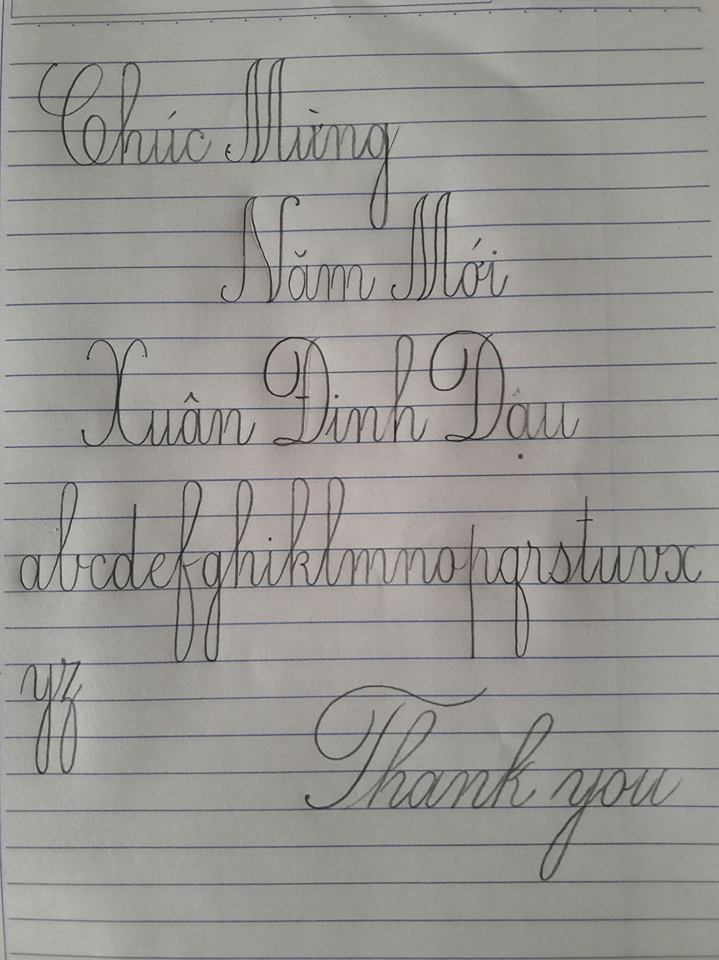 Chúc Mừng
Năm Mới
Xuân Đinh Dậu
abcdefghiklmnopqrstuvx
yz
Thank you